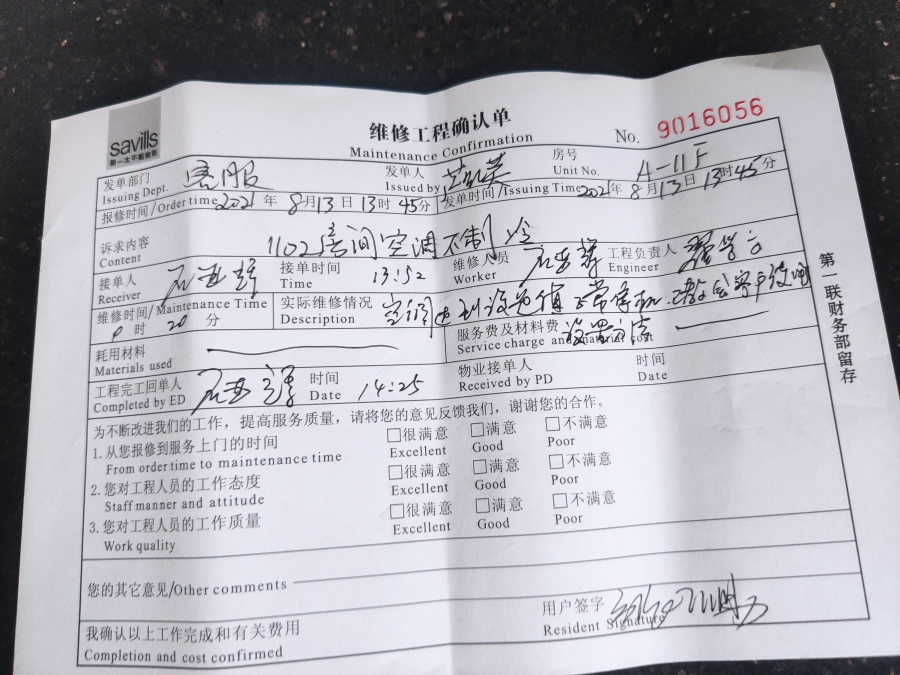 savills
第一太平戴维斯
维修工程确认单
Maintenance Confirmation
No. 9016056
发单部门 客服 发单人 房号 A-11F
Issuing Dept. Issued by Unit No.
报修时间/Order time 2021 年 8 月 13 日 13 时 45 分 发单时间/Issuing Time 2021 年 8 月 13 日 13 时 45 分
诉求内容 1102房间空调不制冷
Content
接单人 接单时间 13:52 维修人员 工程负责人
Receiver Time Worker Engineer
维修时间/Maintenance Time 实际维修情况 空调达到设定值正常停机.教会客户使用
0 时 20 分 Description 设置方法
耗用材料 服务费及材料费
Materials used Service charge and material cost
工程完工回单人 时间 14:25 物业接单人 时间
Completed by ED Date Received by PD Date
为不断改进我们的工作，提高服务质量，请将您的意见反馈我们，谢谢您的合作。
1. 从您报修到服务上门的时间 □很满意 □满意 □不满意
From order time to maintenance time Excellent Good Poor
2. 您对工程人员的工作态度 □很满意 □满意 □不满意
Staff manner and attitude Excellent Good Poor
3. 您对工程人员的工作质量 □很满意 □满意 □不满意
Work quality Excellent Good Poor
您的其它意见/Other comments
用户签字
Resident Signature
我确认以上工作完成和有关费用
Completion and cost confirmed
第一联财务部留存